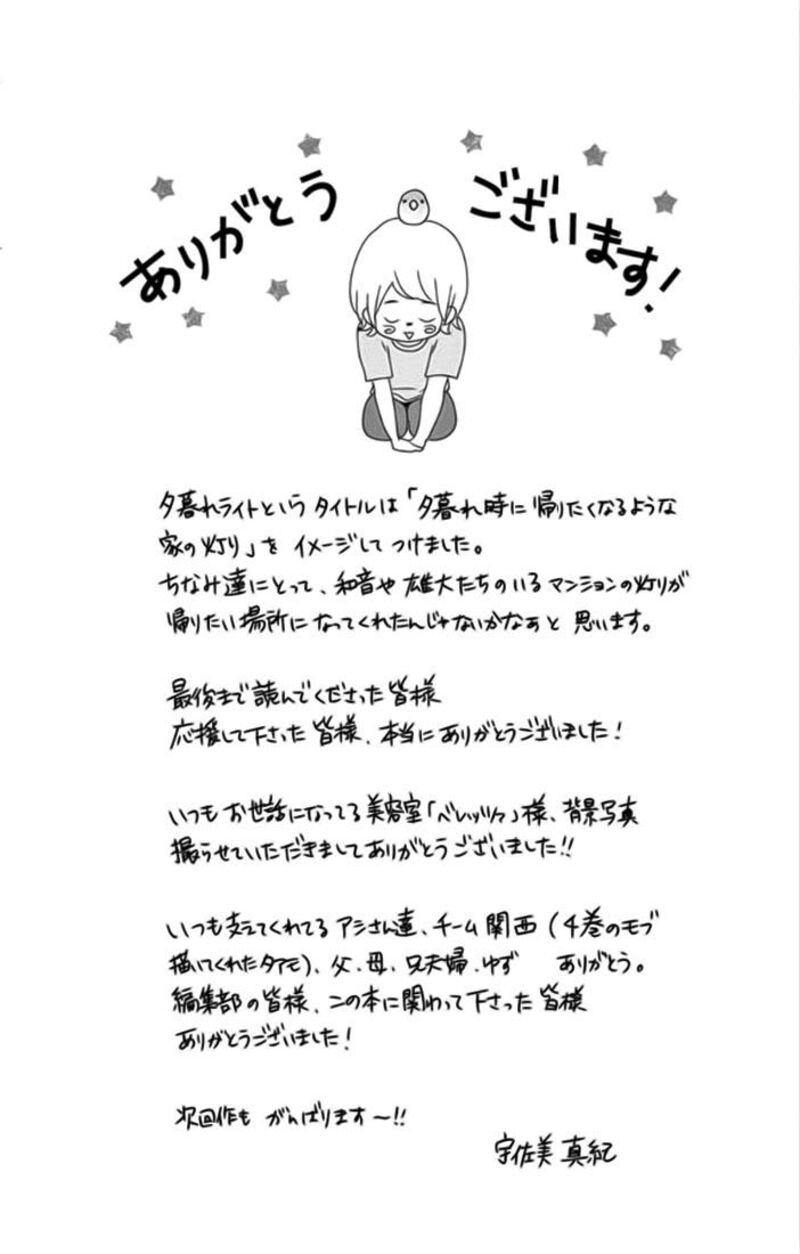 ありがとう ございます!
夕暮れライトという タイトルは「夕暮れ時に 帰りたくなるような
家の灯り」を イメージして つけました。
ちなみ達にとって、和音や 雄大たちのいる マンションの灯りが
帰りたい場所に なってくれたんじゃないかなぁと 思います。
最後まで読んでくださった皆様
応援して下さった 皆様、本当に ありがとうございました!
いつも お世話になってる美容室「ベレッツァ」様、背景写真
撮らせていただきましてありがとうございました!!
いつも支えてくれてる アシさん達、チーム関西 (4巻のモブ
描いてくれたタアモ)、父・母・兄夫婦・ゆず ありがとう。
編集部の皆様、この本に関わって下さった 皆様
ありがとうございました!
次回作も がんばります〜!!
宇佐美 真紀